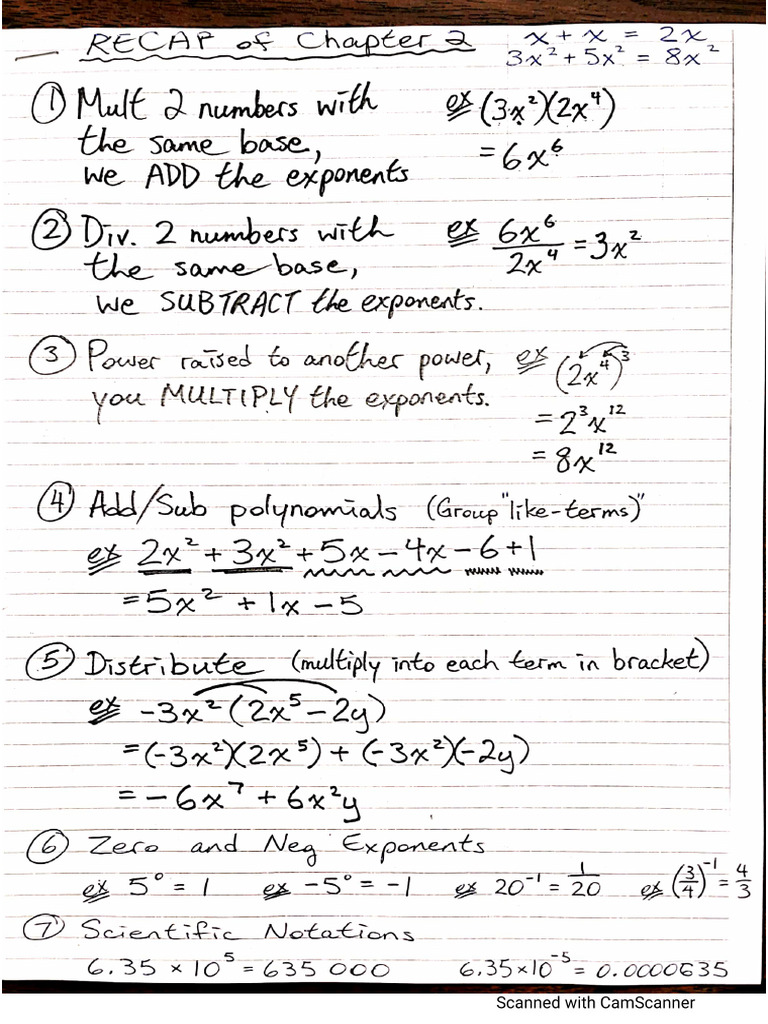 RECAP of Chapter 2
x + x = 2x
3x² + 5x² = 8x²
① Mult 2 numbers with
the same base,
we ADD the exponents
ex (3x²)(2x⁴)
= 6x⁶
② Div. 2 numbers with
the same base,
we SUBTRACT the exponents.
ex 6x⁶/2x⁴ = 3x²
③ Power raised to another power,
you MULTIPLY the exponents.
ex (2x⁴)³
= 2³x¹²
= 8x¹²
④ Add/Sub polynomials (Group "like-terms)"
ex 2x² + 3x² + 5x - 4x - 6 + 1
= 5x² + 1x - 5
⑤ Distribute (multiply into each term in bracket)
ex -3x² (2x⁵ - 2y)
= (-3x²)(2x⁵) + (-3x²)(-2y)
= -6x⁷ + 6x²y
⑥ Zero and Neg Exponents
ex 5⁰ = 1 ex -5⁰ = -1 ex 20⁻¹ = 1/20 ex (3/4)⁻¹ = 4/3
⑦ Scientific Notations
6.35 × 10⁵ = 635 000 6.35×10⁻⁵ = 0.0000635
Scanned with CamScanner